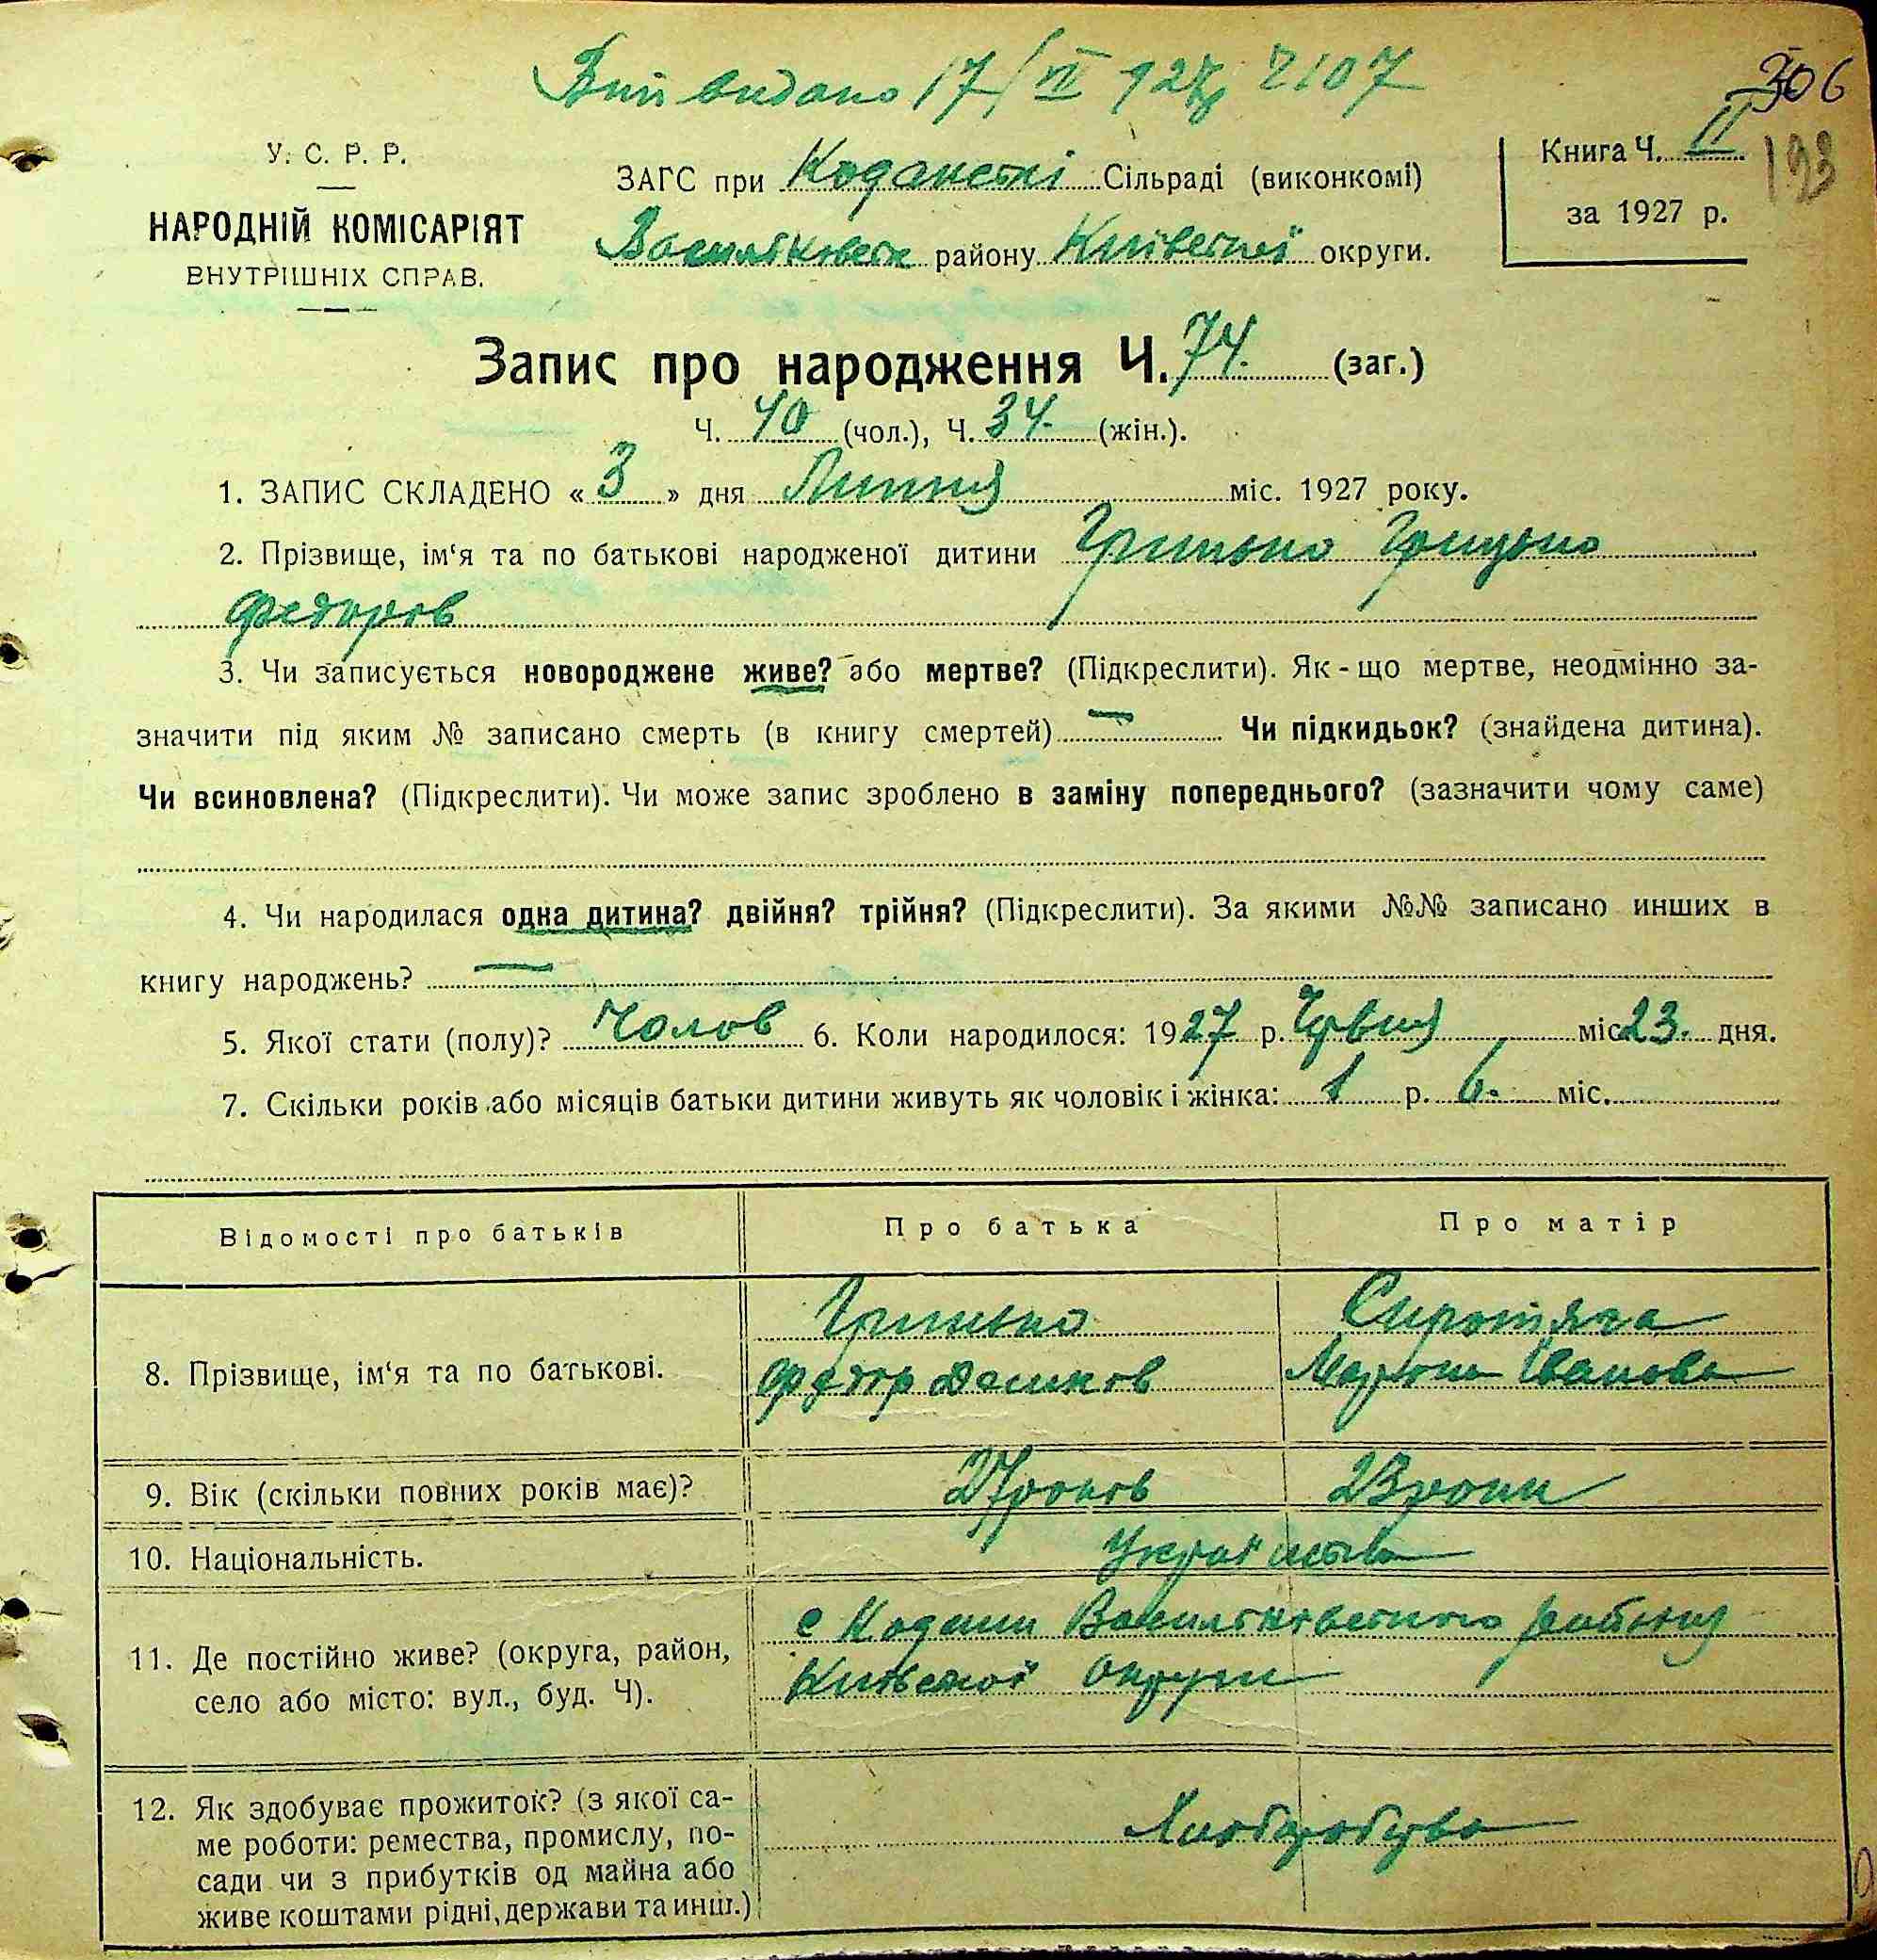 Вип видано 17/VI 927р 2107
306
193
У. С. Р. Р.
НАРОДНІЙ КОМІСАРІЯТ
ВНУТРІШНІХ СПРАВ.
ЗАГС при Коданській Сільраді (виконкомі)
Васильківськ району Київської округи.
Книга Ч. II
за 1927 р.
Запис про народження Ч. 74. (заг.)
Ч. 40 (чол.), Ч. 34. (жін.).
1. ЗАПИС СКЛАДЕНО « 3 » дня Липня міс. 1927 року.
2. Прізвище, ім‘я та по батькові народженої дитини Гринько Грицько
Федоров
3. Чи записується новороджене живе? або мертве? (Підкреслити). Як-що мертве, неодмінно за-
значити під яким № записано смерть (в книгу смертей) — Чи підкидьок? (знайдена дитина).
Чи всиновлена? (Підкреслити). Чи може запис зроблено в заміну попереднього? (зазначити чому саме)
4. Чи народилася одна дитина? двійня? трійня? (Підкреслити). За якими №№ записано инших в
книгу народжень? —
5. Якої стати (полу)? Чолов 6. Коли народилося: 1927 р. Червня міс 23. дня.
7. Скільки років або місяців батьки дитини живуть як чоловік і жінка: 1 р. 6. міс.
Відомості про батьків
Про батька
Про матір
8. Прізвище, ім‘я та по батькові.
Гринько
Федор
Сиротяга
Іванова
9. Вік (скільки повних років має)?
27 років
23 роки
10. Національність.
11. Де постійно живе? (округа, район,
село або місто: вул., буд. Ч).
с Кодаки Васильківського району
Київської округи
12. Як здобуває прожиток? (з якої са-
ме роботи: ремества, промислу, по-
сади чи з прибутків од майна або
живе коштами рідні, держави та инш.)
Хліборобство